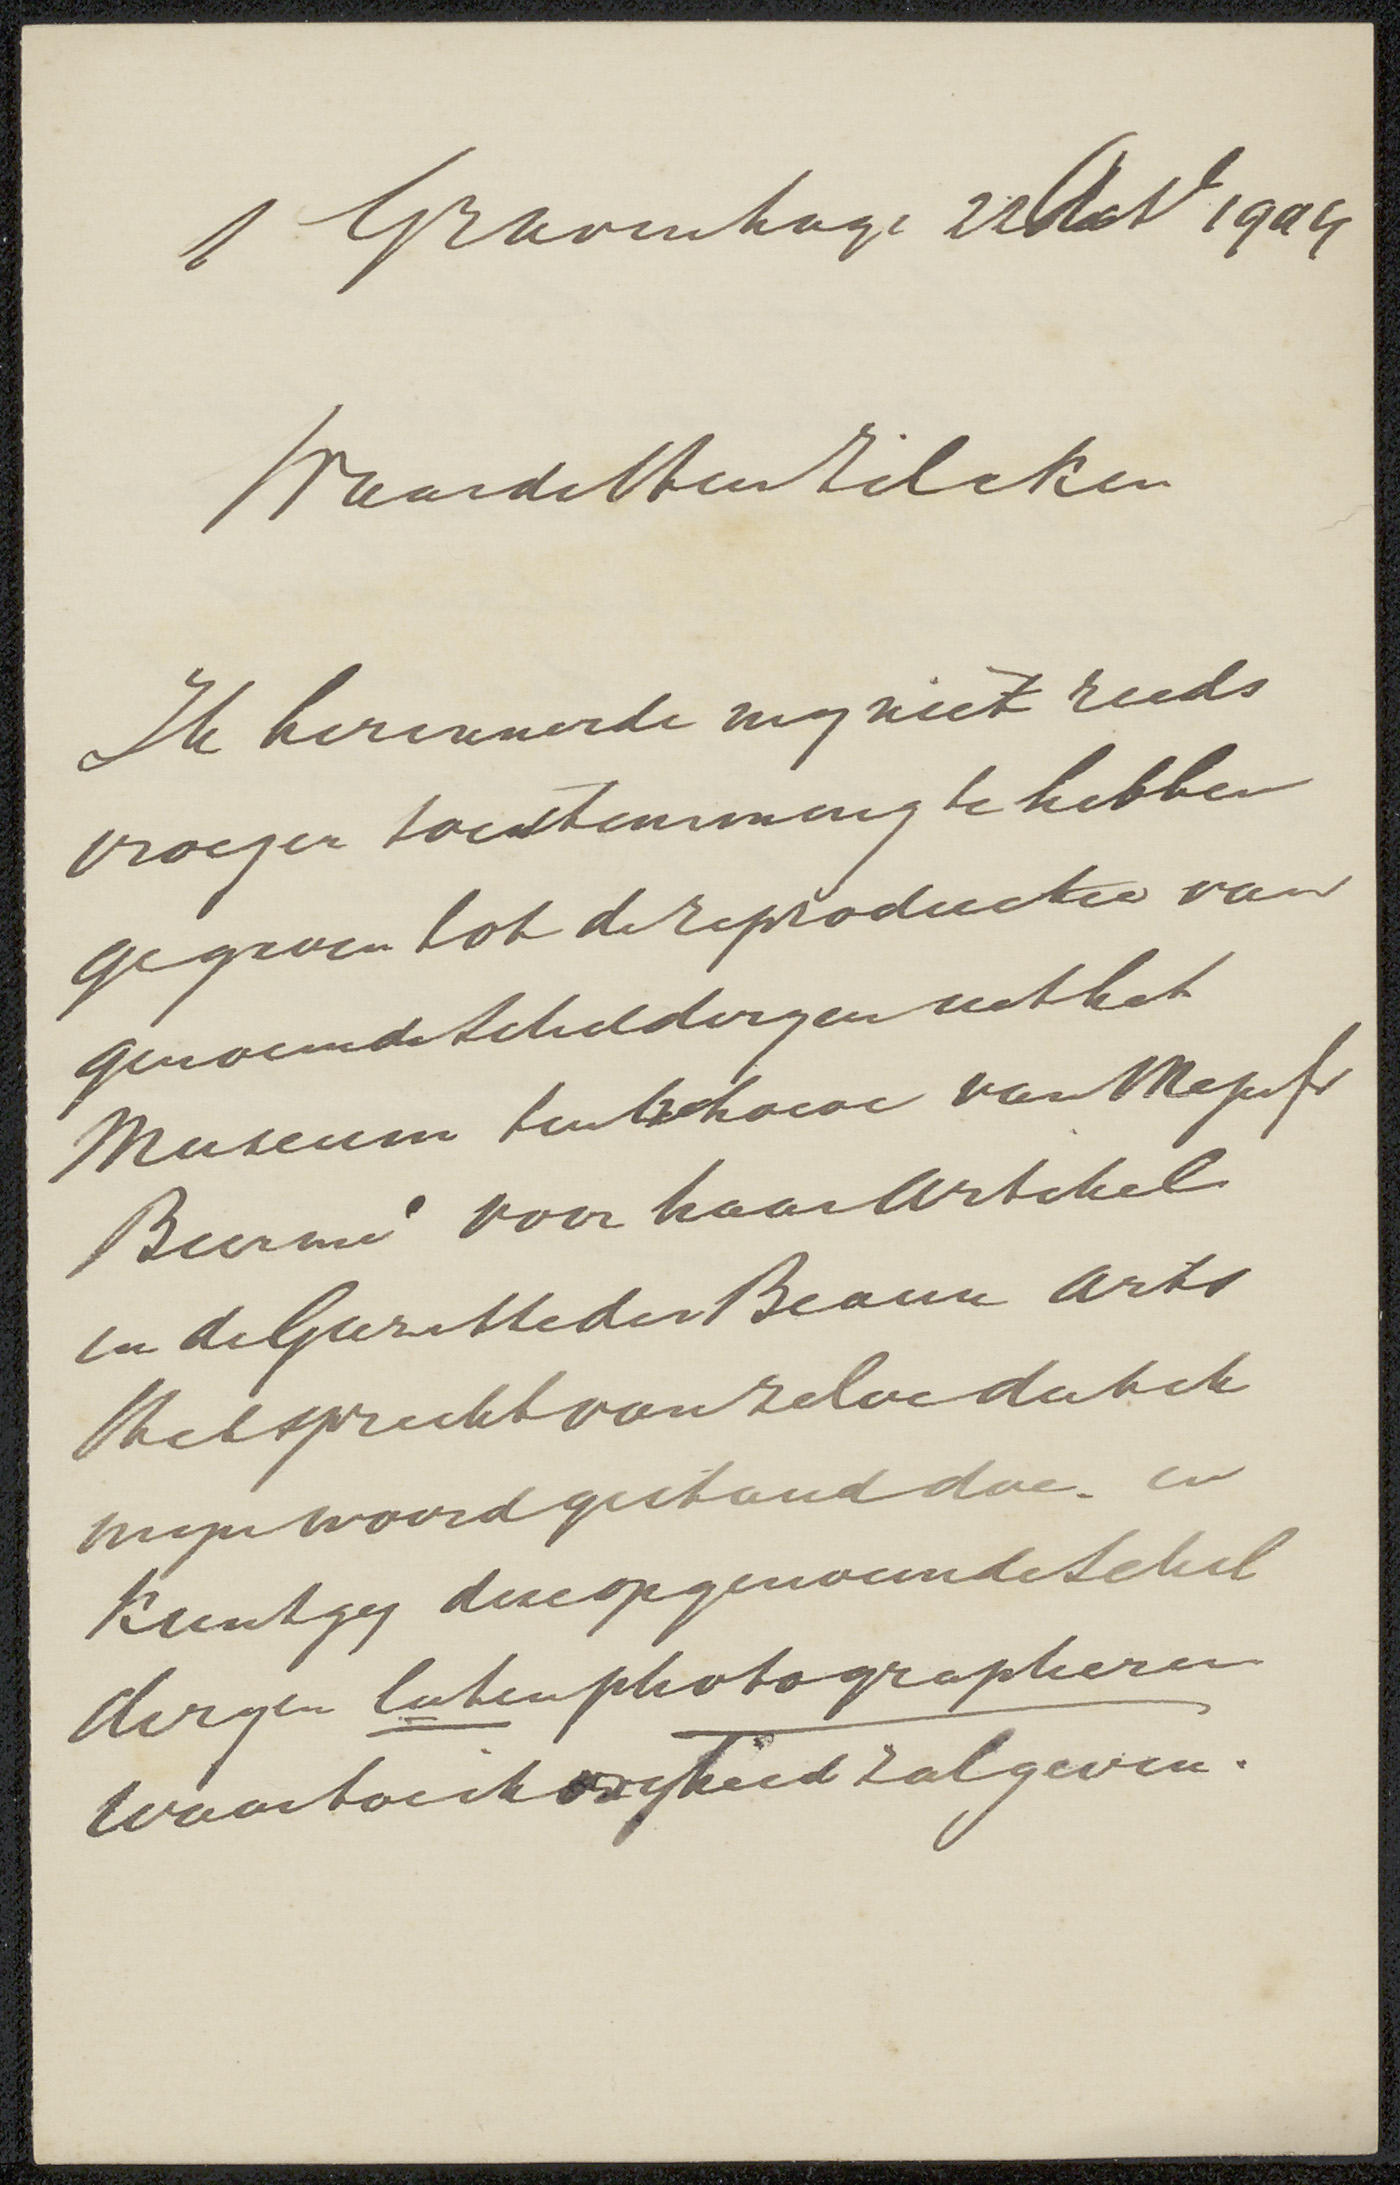 s Gravenhage 22 Oct 1904
Waarde Heer Zilcken
Ik herinnerde mij niet reeds
vroeger toestemming te hebben
gegeven tot de reproductie van
genoemde schilderijen uit het
Museum ten behoeve van Mejufr
voor haar Artikel
in de Gazette des Beaux Arts
Het spreekt van zelve dat ik
mijn woord gestand doe. en
Kunt gij die opgenoemde schil
derijen laten photographeren
waartoe ik zal geven.